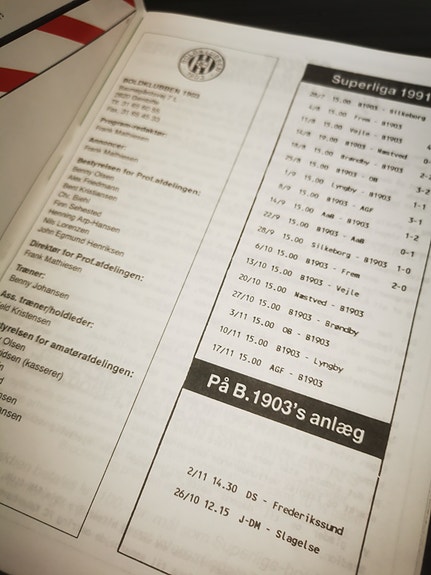 BOLDKLUBBEN 1903
2820 Gentofte
Program-redaktør:
Frank Mathiesen
Annoncer:
Frank Mathiesen
Bestyrelsen for Prof.afdelingen:
Benny Olsen
Alex Friedmann
Bent Kristensen
Chr. Biehl
Finn Sehested
Henning Arp-Hansen
Nils Lorenzen
John Egmund Henriksen
Direktør for Prof.afdelingen:
Frank Mathiesen
Træner:
Benny Johansen
Ass. træner/holdleder:
eld Kristensen
styrelsen for amatørafdelingen:
Olsen
idsen (kasserer)
Superliga 1991
28/7 15.00 B1903 - Silkeborg
4/8 15.00 Frem - B1903
11/8 15.00 Vejle - B1903
B1903 - Næstved
18/8 15.00 Brøndby - B1903
25/8 15.00 B1903 - OB
1/9 15.00 Lyngby - B1903
8/9 15.00 B1903 - AGF
14/9 15.00 AaB - B1903
22/9 15.00 B1903 - AaB
28/9 15.00 Silkeborg - B1903
6/10 15.00 B1903 - Frem
13/10 15.00 B1903 - Vejle
20/10 15.00 Næstved - B1903
27/10 15.00 B1903 - Brøndby
3/11 15.00 OB - B1903
10/11 15.00 B1903 - Lyngby
17/11 15.00 AGF - B1903
På B.1903's anlæg
2/11 14.30 DS - Frederikssund
26/10 12.15 J-DM - Slagelse